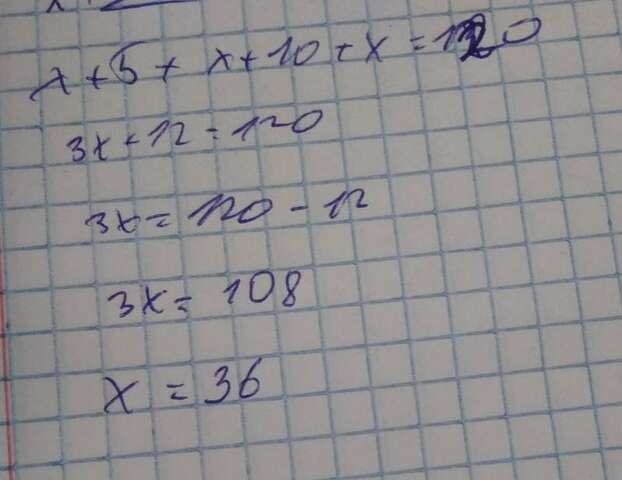 x + 5 + x + 10 + x = 120
3x + 12 = 120
3x = 120 - 12
3x = 108
x = 36